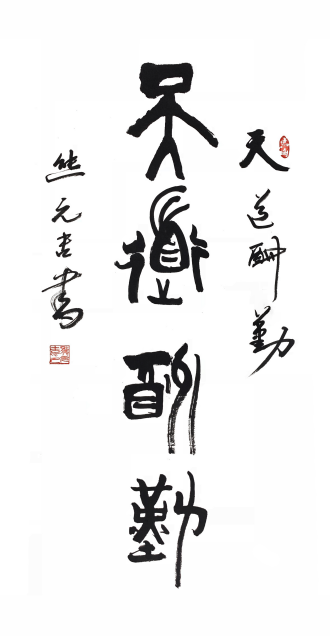 天道酬勤
天道酬勤
熊元吉書